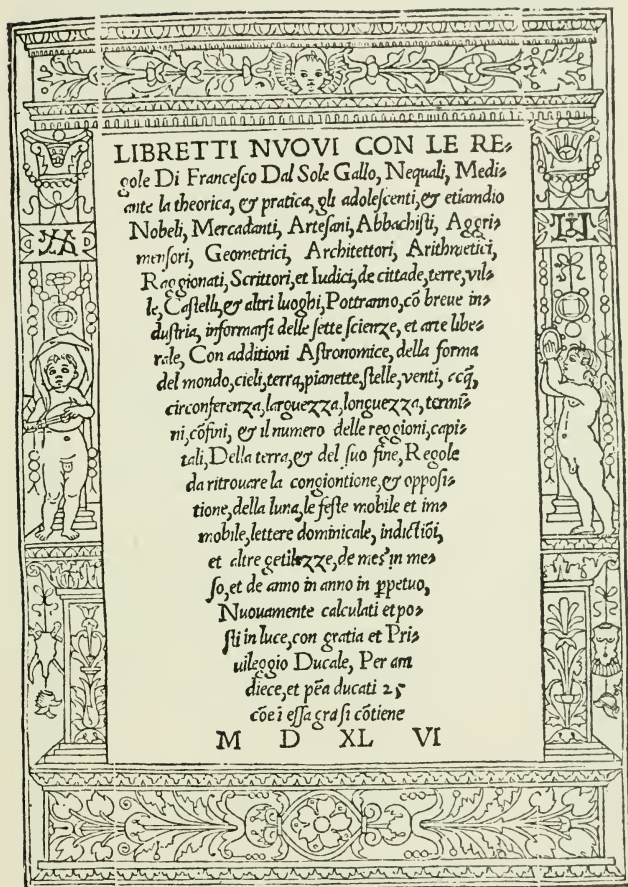 LIBRETTI NVOVI CON LE RE⸗
gole Di Franceſco Dal Sole Gallo, Nequali, Medi⸗
ante la theorica, & pratica, gli adoleſcenti, & etiamdio
Nobeli, Mercadanti, Arteſani, Abbachiſti, Aggri⸗
menſori, Geometrici, Architettori, Arithmetici,
Raggionati, Scrittori, et Iudici, de cittade, terre, vil⸗
le, Caſtelli, & altri luoghi, Pottranno, cõ breue in⸗
duſtria, informarſi delle ſette ſcienze, et arte libe⸗
rale, Con additioni Aſtronomice, della forma
del mondo, cieli, terra, pianette, ſtelle, venti, accq,
circonferenza, larguezza, longuezza, termi⸗
ni, cõfini, & il numero delle reggioni, capi⸗
tali, Della terra, & del ſuo fine, Regole
da ritrouare la congiontione, & oppoſi⸗
tione, della luna, le feſte mobile et im⸗
mobile, lettere dominicale, indictiõi,
et altre getilezze, de meſ' in me⸗
ſo, et de anno in anno in ꝑpetuo,
Nuouamente calculati et po⸗
ſti in luce, con gratia et Pri⸗
uileggio Ducale, Per am
diece, et pẽa ducati 25
cõe ĩ eſſa graſi cõtiene
M D XL VI